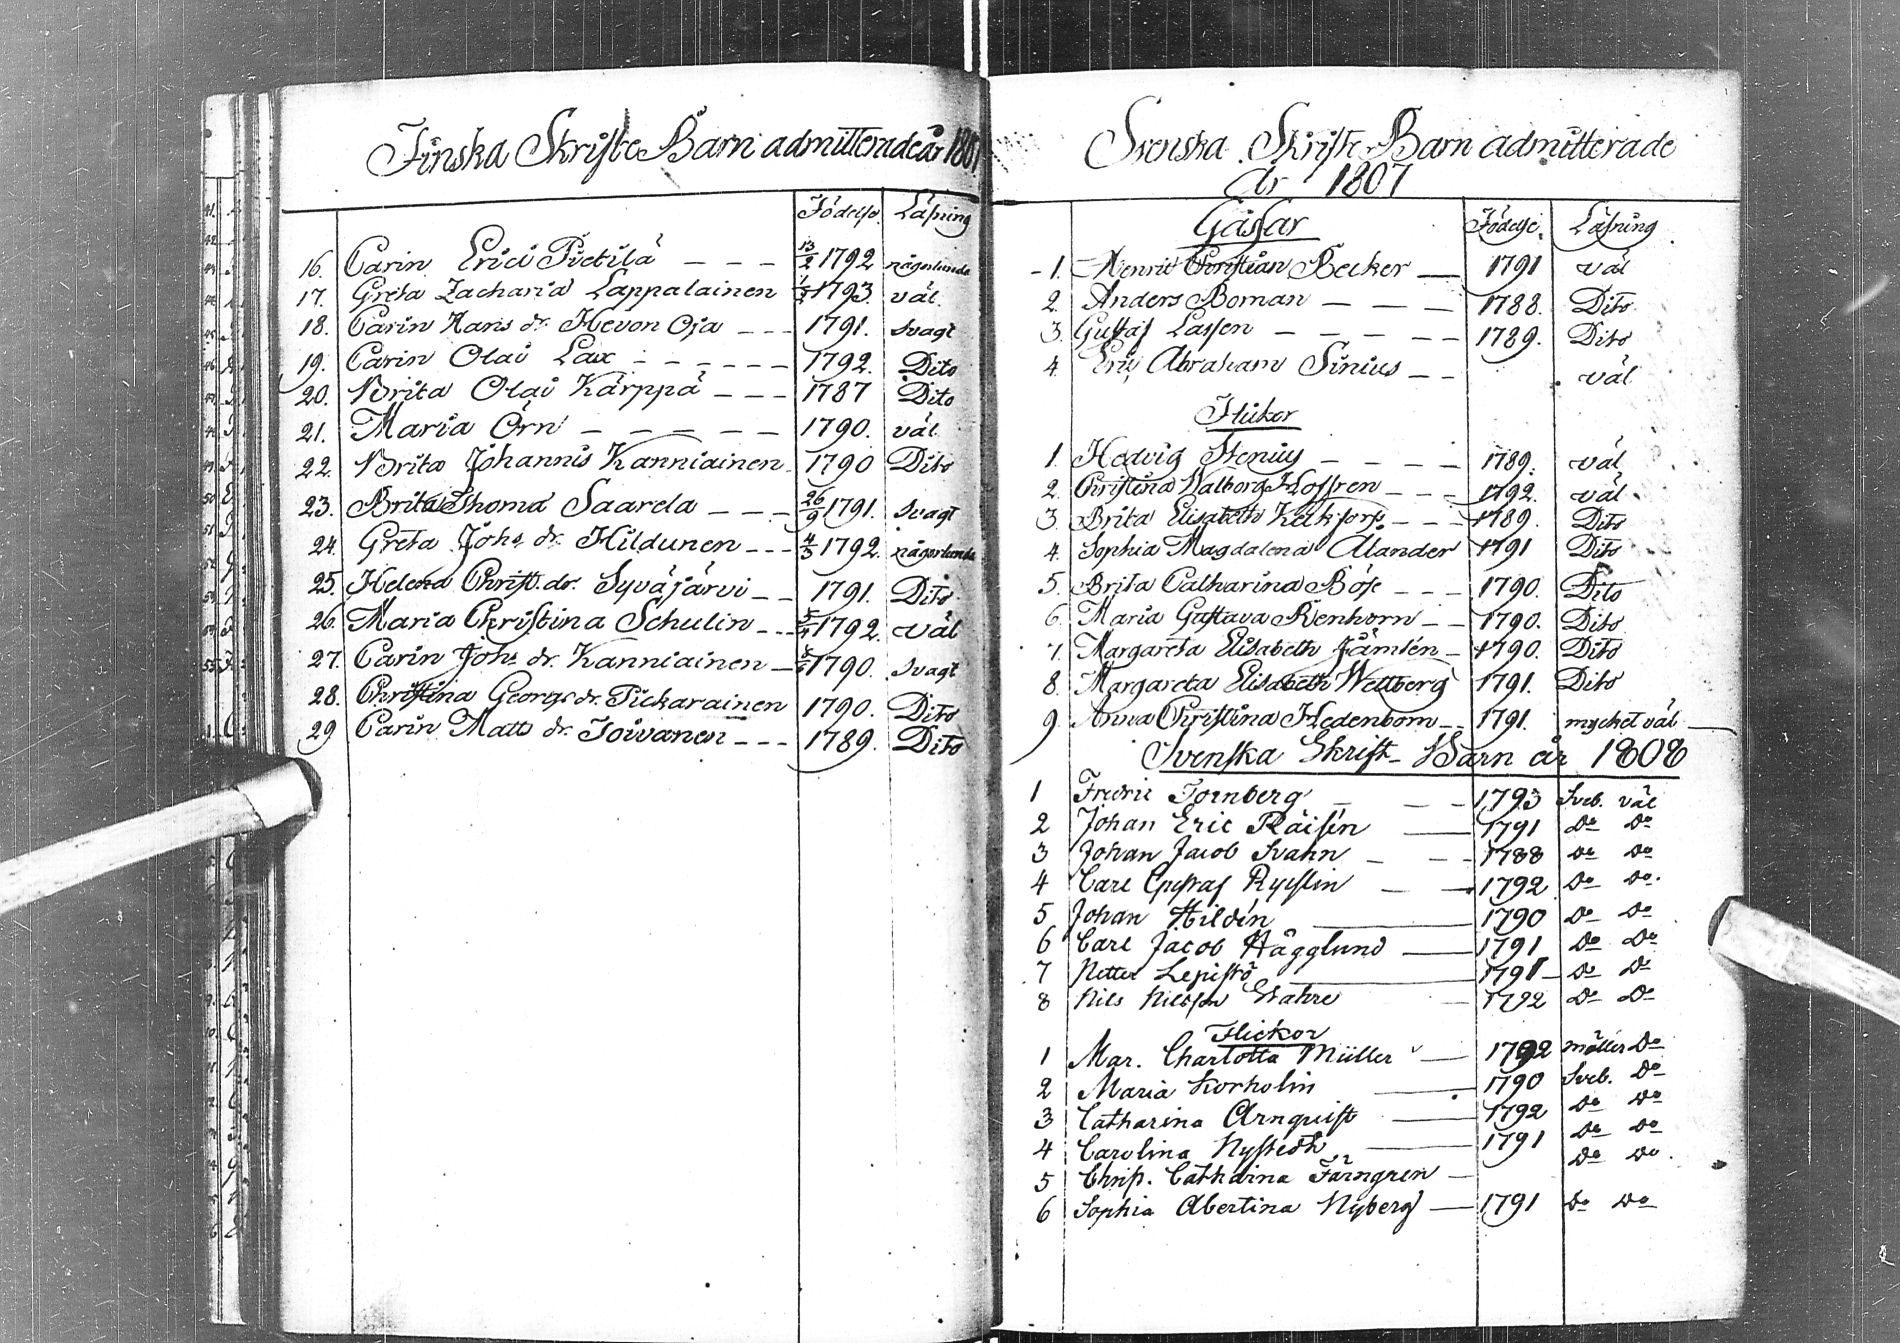 Finska Skrifte Barn admitterade år 1807
Födelse. Läsning
16. Carin Erici Pietilä - - - 13/2 1792 någorlunda
17. Greta Zacharia Lappalainen 1793. väl.
18. Carin Hans dr. Hevon Oja - - - 1791. svagt
19. Carin Olai Lax - - - - - - 1792. Dito
20. Brita Olai Kärppä - - - 1787 Dito
21. Maria Örn - - - - - 1790. väl
22. Brita Johannis Kanniainen 1790 Dito
23. Brita Thoma Saarela - - - 26/9 1791. svagt
24. Greta Johs dr. Hildunen - - - 4/3 1792. någorlunda
25. Helena Christ. dr. Syväjärvi - - 1791. Dito
26. Maria Christina Schulin - - - 5/4 1792. väl
27. Carin Johs dr. Kanniainen - 1790. svagt
28. Christina Georgs dr. Pickarainen 1790. Dito
29 Carin Matts dr. Toivanen - - - 1789. Dito
Svenska Skrifte Barn admitterade
år 1807
Gåssar Födelse. Läsning.
1. Henric Christian Becker — 1791 väl
2. Anders Boman - - - 1788. Dito
3. Gustaf Lassen - - - - - 1789. Dito
4. Eric Abraham Sinius - - väl
Flickor
1. Hedvig Stenius - - - - 1789. väl
2. Christina Walborg Hoffren - - - 1792. väl.
3. Brita Elisabeth - - - 1789. Dito
4. Sophia Magdalena Alander 1791 Dito
5. Brita Catharina Böse - - - 1790. Dito
6. Maria Gustava Renhorn - - 1790. Dito
7. Margareta Elisabeth Jämtén - 1790. Dito
8. Margareta Elisabeth Wettberg 1791. Dito
9. Anna Christina Hedenborn - - 1791. mycket väl
Svenska Skrift-Barn år 1808
1 Fredric Tornberg - - - 1793 Sveb. väl
2 Johan Eric Räisén — 1791 Do Do
3 Johan Jacob Svahn - - - 1788 Do Do
4 Carl Gustaf Rystin - - 1792 Do Do.
5 Johan Hildén — 1790 Do Do
6 Carl Jacob Hägglund — 1791 Do Do
7 Petter Lepistö — 1791 - Do Do
8 Nils Nilsson Wahre — 1792 Do Do
Flickor
1 Mar. Charlotta Müller — 1792 möller Do
2 Maria Korholin — 1790 Sveb. Do
3 Catharina Arnquist — 1792 Do Do
4 Carolina Nystedt — 1791 Do Do
5 Christ. Catharina Färngren — Do Do.
6 Sophia Abertina Nyberg — 1791 Do Do